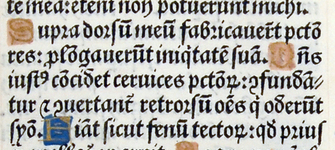 te mea: etenī non potuerunt michi.
Supra dorsū meū fabricauerūt pctō
res: ꝓlōgauerūt iniq̄tatē suā. Dn̄s
iustꝰ cōcidet ceruices pctōꝝ: ꝯfundā-
tur ⁊ ꝯuertant̄ retrorsū oēs q̄ oderūt
syō. Fiāt sicut fenū tectoꝝ: qđ prius